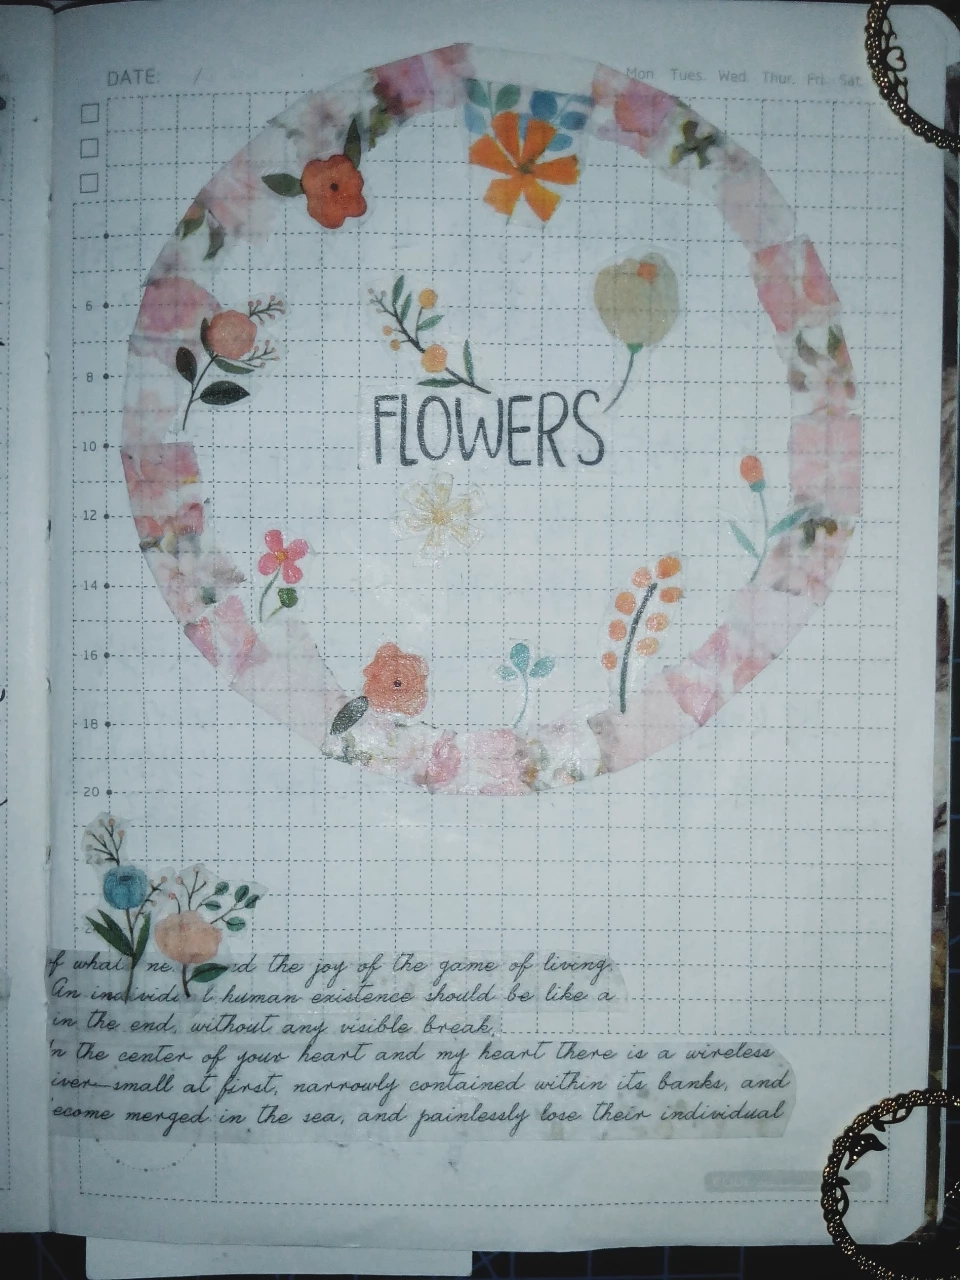 DATE: /
Mon Tues. Wed. Thur. Fri. Sat.
6
8
10
12
14
16
18
20
FLOWERS
f what ne d the joy of the game of living.
An individu l human existence should be like a
in the end, without any visible break,
n the center of your heart and my heart there is a wireless
iver—small at first, narrowly contained within its banks, and
ecome merged in the sea, and painlessly lose their individual